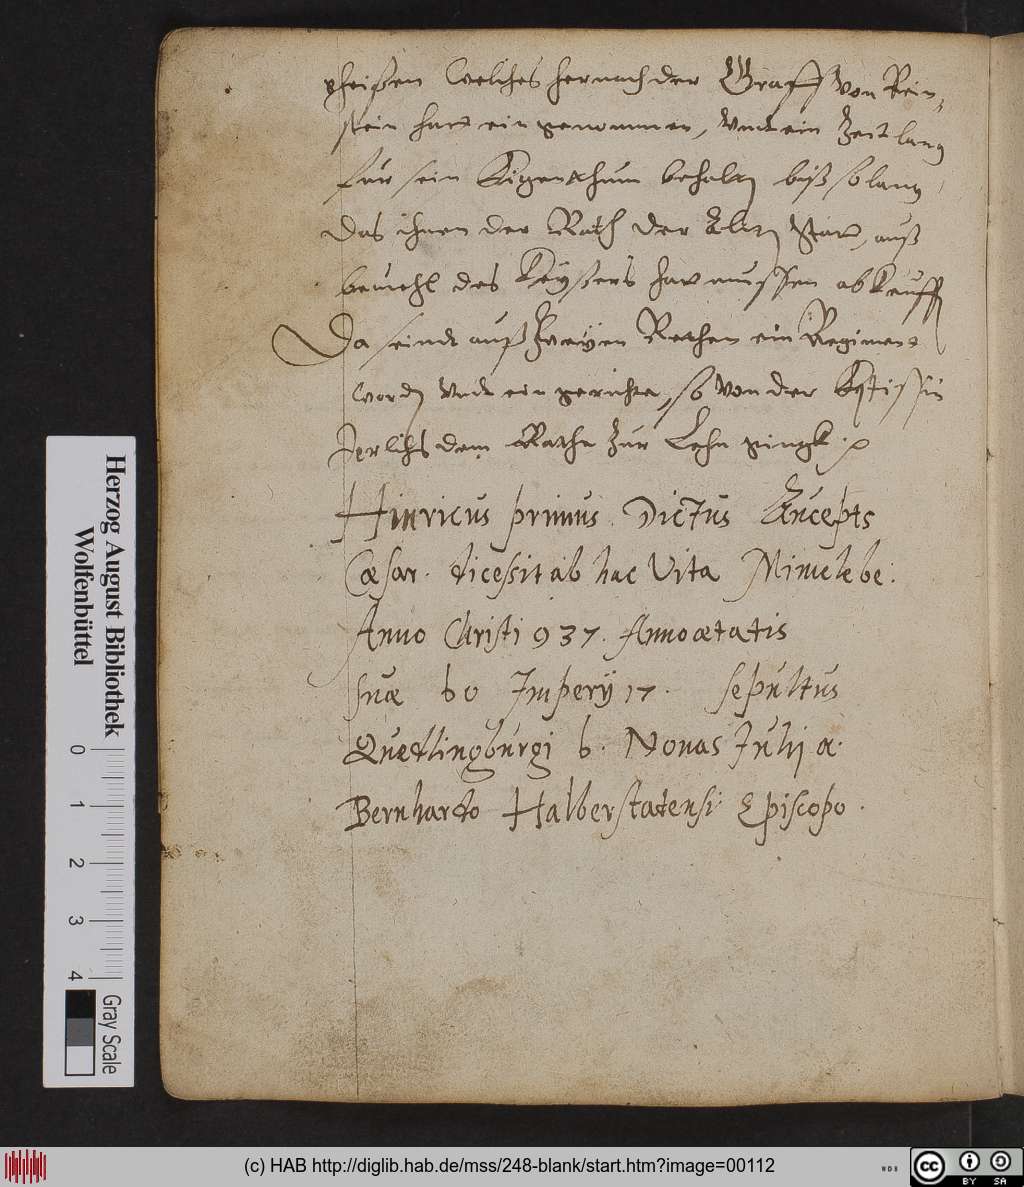 pheißen welches hernach der Graff von Rein-
stein hatt ein genommen, vnd ein Zeit lang
für sein Eigenthum behalten biß so lang
das ihnen der Rath der Alten Stat, auß
beuehl des Keyßers hat mussen ab Kauffen
Da seindt auß Zweyen Rethen ein Regiment
worden vnd ein gerichte, so von der Ebtissin
Jerlichs dem Rathe zur Lehn
Hinricus primus Dictus Aucepts
Cæsar. dicessit ab hac Vita Mimelebe.
Anno Christi 937. Anno ætatis
suæ 60 Impery 17. sepultus
Quedlingburgi 6. Nonas Julij a.
Bernhardo Halberstatensi Episcopo.
Herzog August Bibliothek
Wolfenbüttel
0 1 2 3 4
Gray Scale
(c) HAB http://diglib.hab.de/mss/248-blank/start.htm?image=00112
WDB
cc BY SA